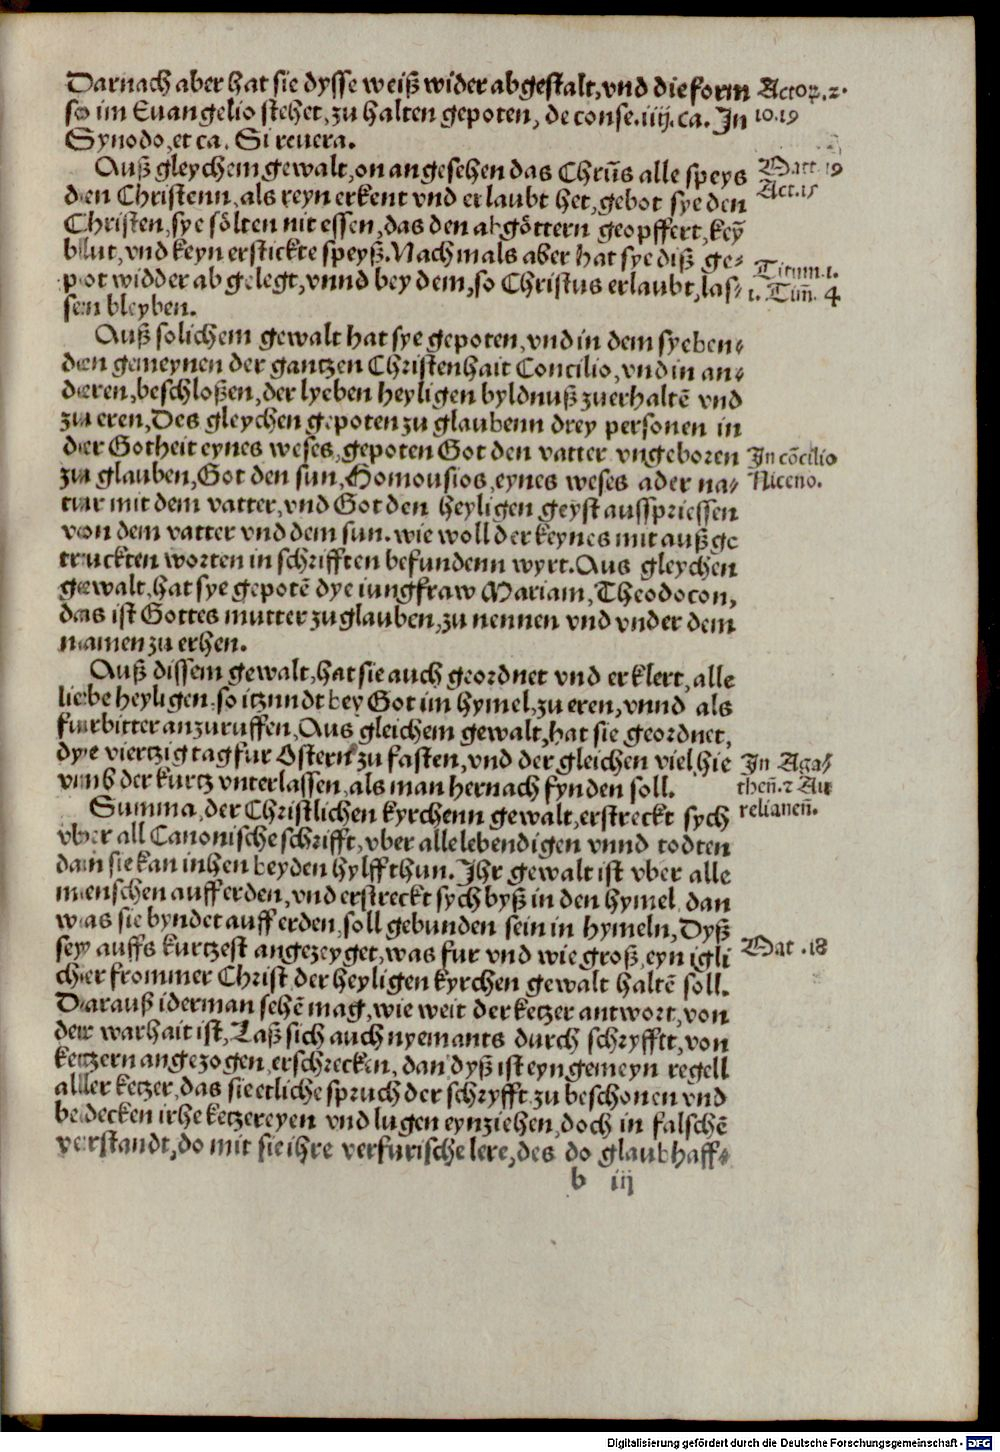 Darnach aber hat sie dysse weiß wider abgestalt, vnd die form
so im Euangelio stehet, zu halten gepoten, de conse. iiij. ca. In
Synodo, et ca. Si reuera.
Actor. 2.
10. 19
Auß gleychem gewalt, on angesehen das Chrūs alle speys
den Christenn, als reyn erkent vnd erlaubt het, gebot sye den
Christen, sye sölten nit essen, das den abgöttern geopffert, key̅
blut, vnd keyn erstickte speyß. Nachmals aber hat sye diß ge-
pot widder abgelegt, vnnd bey dem, so Christus erlaubt, las-
sen bleyben.
Matt. 19
Act. 15
Titum. 1.
1. Tim̅. 4
Auß solichem gewalt hat sye gepoten, vnd in dem sy eben-
den gemeynen der gantzen Christenhait Concilio, vnd in an-
deren, beschloßen, der lyeben heyligen byldnuß zuerhaltē vnd
zu eren, Des gleychen gepoten zu glaubenn drey personen in
der Gotheit eynes weses, gepoten Got den vatter vngeboren
zu glauben, Got den sun, Homousios, eynes weses ader na-
tur mit dem vatter, vnd Got den heyligen geyst ausspriessen
von dem vatter vnd dem sun. wie woll der keynes mit außge
truckten worten in schrifften befundenn wyrt. Aus gleychen
gewalt, hat sye gepotē dye iungfraw Mariam, Theodocon,
das ist Gottes mutter zuglauben, zu nennen vnd vnder dem
namen zu erhen.
In cōcilio
Niceno.
Auß dissem gewalt, hat sie auch geordnet vnd erklert, alle
liebe heyligen, so itzundt bey Got im hymel, zu eren, vnnd als
furbitter anzuruffen, Aus gleichem gewalt, hat sie geordnet,
dye viertzig tag fur Ostern zu fasten, vnd der gleichen viel hie
vmb der kurtz vnterlassen, als man hernach fynden soll.
In Aga-
then̅. ⁊ Au
relianen̅.
Summa, der Christlichen kyrchenn gewalt, erstreckt sych
vber all Canonische schrifft, vber alle lebendigen vnnd todten
dan sie kan inhen beyden hylff thun. Ihr gewalt ist vber alle
menschen auff erden, vnd erstreckt sych byß in den hymel, dan
was sie byndet auff erden, soll gebunden sein in hymeln, Dyß
sey auffs kurtzest angezeyget, was fur vnd wie groß, eyn igli
cher frommer Christ der heyligen kyrchen gewalt haltē soll.
Darauß iderman sehē mag, wie weit der ketzer antwort, von
der warhait ist, Laß sich auch nyemants durch schryfft, von
ketzern angezogen, erschrecken, dan dyß ist eyn gemeyn regell
aller ketzer, das sie etliche spruch der schryfft zu beschonen vnd
bedecken irhe ketzereyen vnd lugen eynziehen, doch in falschē
verstandt, do mit sie ihre verfurische lere, des do glaubhaff-
Mat. 18
b iij
Digitalisierung gefördert durch die Deutsche Forschungsgemeinschaft - DFG